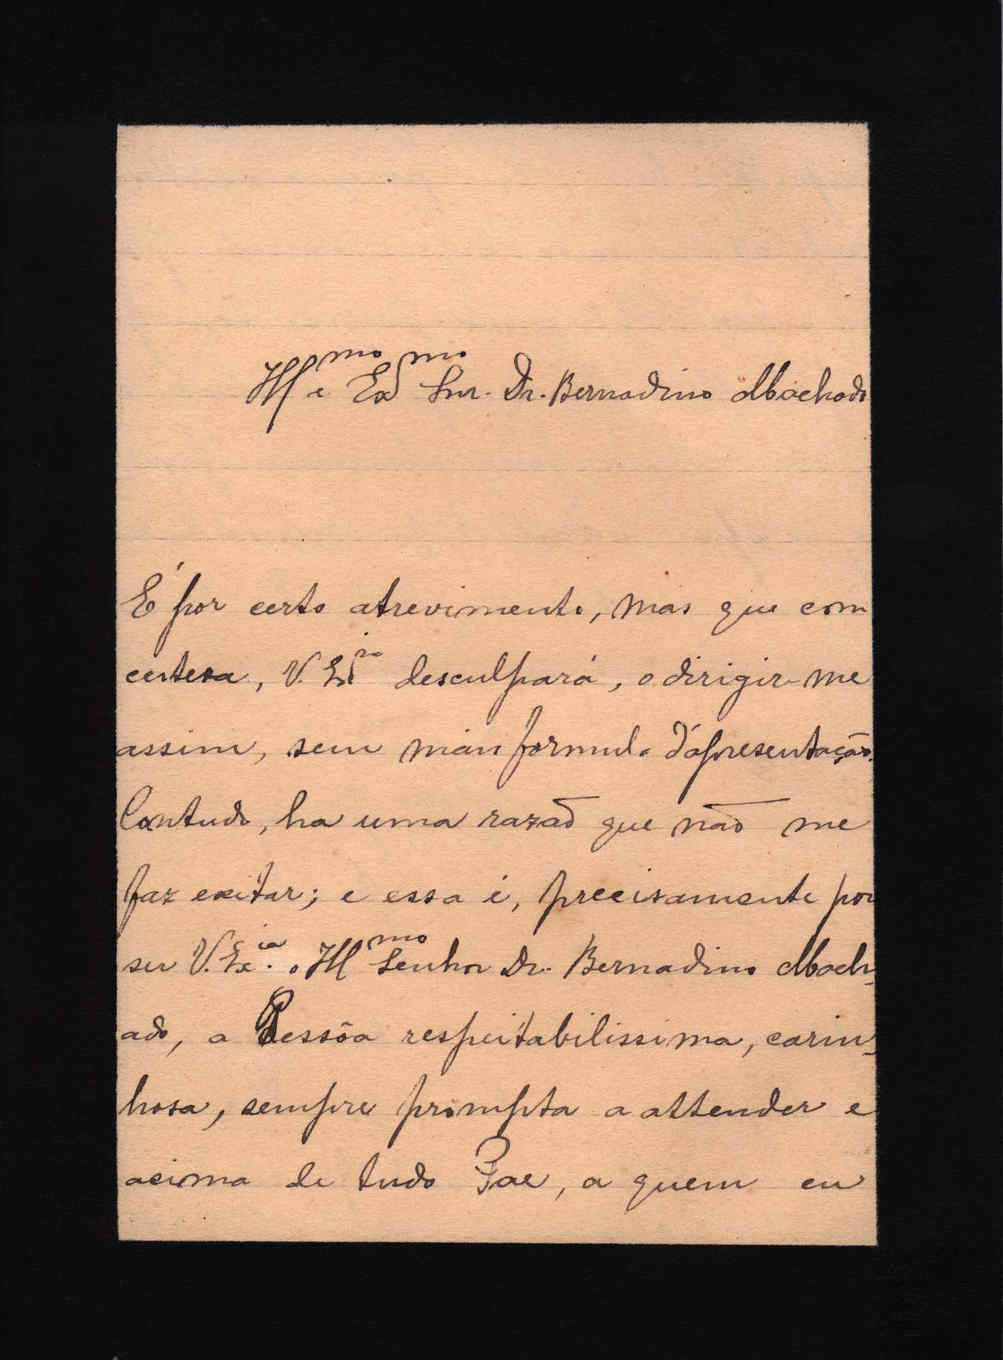 Ill.mo e Ex.mo Snr. Dr. Bernadino Machado
É por certo atrevimento, mas que com
certesa, V. Ex.ia desculpará, o dirigir-me
assim, sem mais formula d'apresentação.
Contudo, ha uma razaõ que naõ me
faz exitar; e essa é, precisamente por
ser V. Ex.ia o Ill.mo Senhor Dr. Bernadino Mach-
ado, a Pessôa respeitabilissima, carin-
hosa, sempre prompta a attender e
acima de tudo Pae, a quem eu